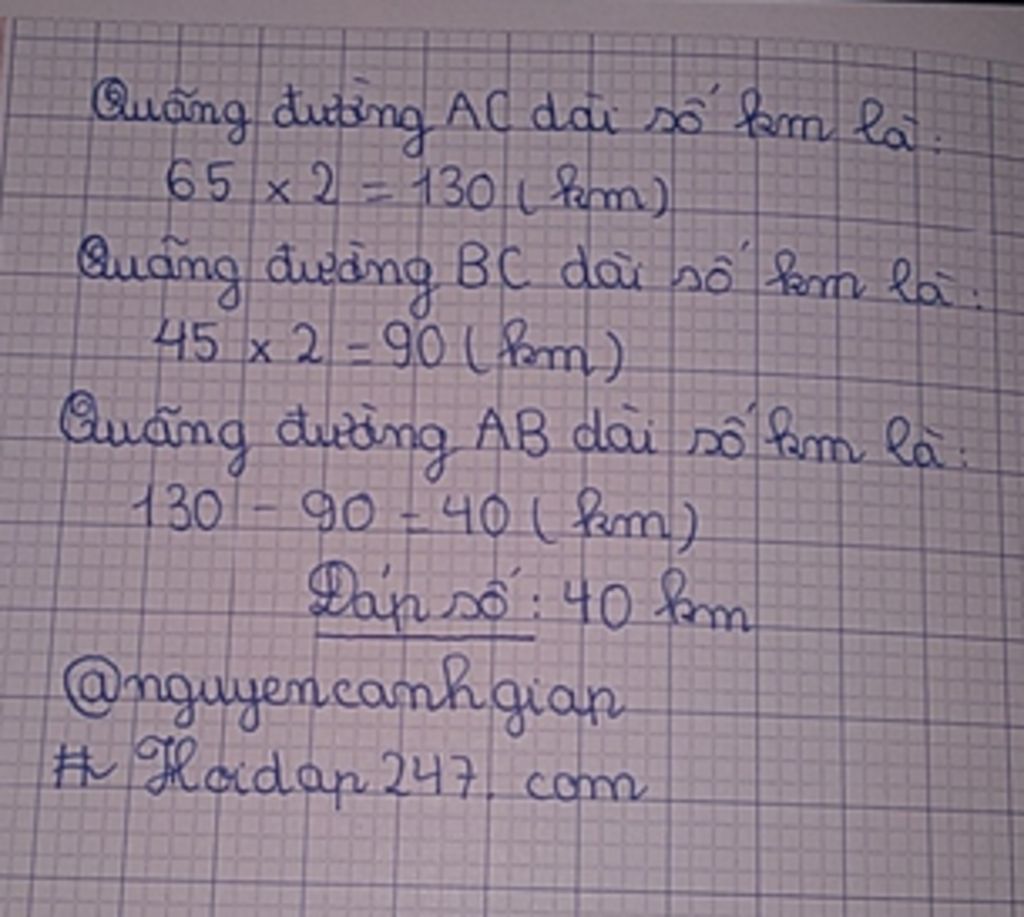 Quãng đường AC dài số km là:
65 x 2 = 130 (km)
Quãng đường BC dài số km là:
45 x 2 = 90 (km)
Quãng đường AB dài số km là:
130 - 90 = 40 (km)
Đáp số: 40 km
@nguyencanhgiap
# Hoidap247.com